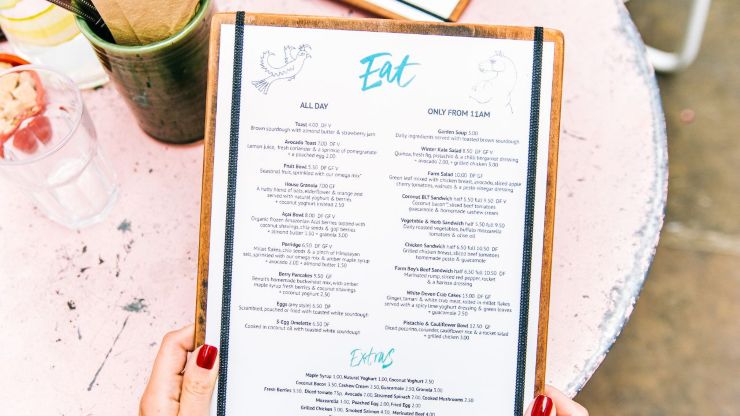 Eat
ALL DAY
Toast 4.00 DF V
Brown sourdough with almond butter & strawberry jam
Avocado Toast 7.00 DF V
Lemon juice, fresh coriander & a sprinkle of pomegranate
+ a poached egg 2.00
Fruit Bowl 5.50 DF GF V
Seasonal fruit, sprinkled with our omega mix
House Granola 7.00 GF
A nutty blend of oats, elderflower & orange and
served with natural yoghurt & berries
+ coconut yoghurt instead 2.50
Açaí Bowl 9.00 DF GF V
Organic frozen Amazonian Açaí berries topped with
coconut shavings, chia seeds & goji berries
+ almond butter 1.50 + granola 3.00
Porridge 6.50 DF GF V
Millet flakes, chia seeds & a pinch of Himalayan
salt, sprinkled with our omega mix & amber maple syrup
+ avocado 2.00 + almond butter 1.50
Berry Pancakes 9.50 GF
homemade buckwheat mix, with amber
maple syrup fresh berries & coconut shavings
+ coconut yoghurt 2.50
Eggs (any style) 6.50 DF
Scrambled, poached or fried with toasted white sourdough
3-Egg Omelette 6.50 DF
Cooked in coconut oil with toasted white sourdough
ONLY FROM 11AM
Garden Soup 5.00
Daily ingredients served with toasted brown sourdough
Winter Kale Salad 8.50 DF GF V
Quinoa, fresh fig, pistachio & a chilli bergamot dressing
+ avocado 2.00, + grilled chicken 3.00
Farm Salad 10.00 DF GF
Green leaf mixed with chicken breast, avocado, sliced apple
cherry tomatoes, walnuts & a paste vinegar dressing
Coconut BLT Sandwich half 5.50 full 9.50 DF V
Coconut bacon, sliced beef tomatoes
guacamole & homemade cashew cream
Vegetable & Herb Sandwich half 5.50 full 9.50
Daily roasted vegetables, buffalo mozzarella
tomatoes & olive oil
Chicken Sandwich half 6.50 full 10.50 DF
Grilled chicken breast, sliced beef tomatoes
homemade pesto & guacamole
Farm Boy's Beef Sandwich half 6.50 full 10.50 DF
Marinated rump, sliced red pepper, rocket
& a harissa dressing
White Devon Crab Cakes 13.00 DF GF
Ginger, tamari & white crab meat, rolled in millet flakes
served with a spicy lime yoghurt dressing & green leaves
+ guacamole 2.50
Pistachio & Cauliflower Bowl 12.50 GF
Diced pecorino, coriander, cauliflower rice & a rocket salad
+ grilled chicken 3.00
Extras
Maple Syrup 1.00, Natural Yoghurt 1.00, Coconut Yoghurt 2.50
Coconut Bacon 3.50, Cashew Cream 2.50, Guacamole 2.50, Granola 3.00
Fresh Berries 3.50, Diced tomato 2.00, Steamed Spinach 2.00, Cooked Mushrooms 2.50
Mozzarella 3.00, Poached Egg 2.00, Fried Egg 2.00
Grilled Chicken 3.00, Smoked Salmon 4.50, Marinated Beef 4.00